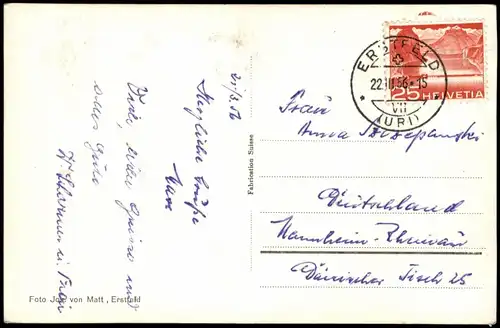 21/3.56
Herzliche Grüsse
Viele, viele Grüsse und
alles Gute
Foto Jos. von Matt, Erstfeld
Fabrication Suisse
ERSTFELD
22.III.56-15
VII
(URI)
25 HELVETIA
Frau
Anna Szczepanski
Deutschland
Mannheim-Rheinau
Dänischer Tisch 25